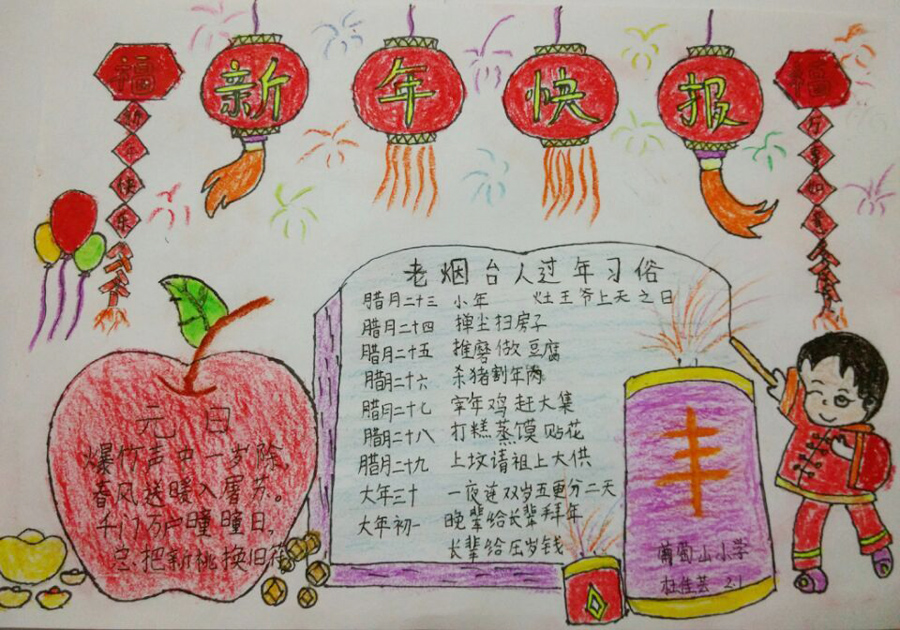 新年快报
福
新年快乐
福
万事如意
老烟台人过年习俗
腊月二十三 小年 灶王爷上天之日
腊月二十四 掸尘扫房子
腊月二十五 推磨做豆腐
腊月二十六 杀猪割年肉
腊月二十七 宰年鸡赶大集
腊月二十八 打糕蒸馍贴花
腊月二十九 上坟请祖上大供
大年三十 一夜连双岁五更分二天
大年初一 晚辈给长辈拜年
长辈给压岁钱
元日
爆竹声中一岁除,
春风送暖入屠苏。
千门万户曈曈日,
总把新桃换旧符
丰
葡萄山小学
杜佳芸 2.1